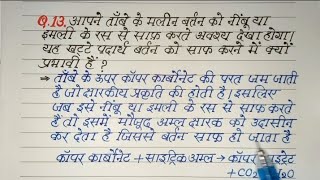 Q.13. आपने ताँबे के मलीन बर्तन को नींबू या
इमली के रस से साफ़ करते अवश्य देखा होगा।
यह खट्टे पदार्थ बर्तन को साफ़ करने में क्यों
प्रभावी हैं ?
→ ताँबे के ऊपर कॉपर कार्बोनेट की परत जम जाती
है जो क्षारकीय प्रकृति की होती है। इसलिए
जब इसे नींबू या इमली के रस से साफ करते
हैं तो इसमें मौजूद अम्ल क्षारक को उदासीन
कर देता है जिससे बर्तन साफ हो जाता है
कॉपर कार्बोनेट + साइट्रिक अम्ल → कॉपर
+ CO2